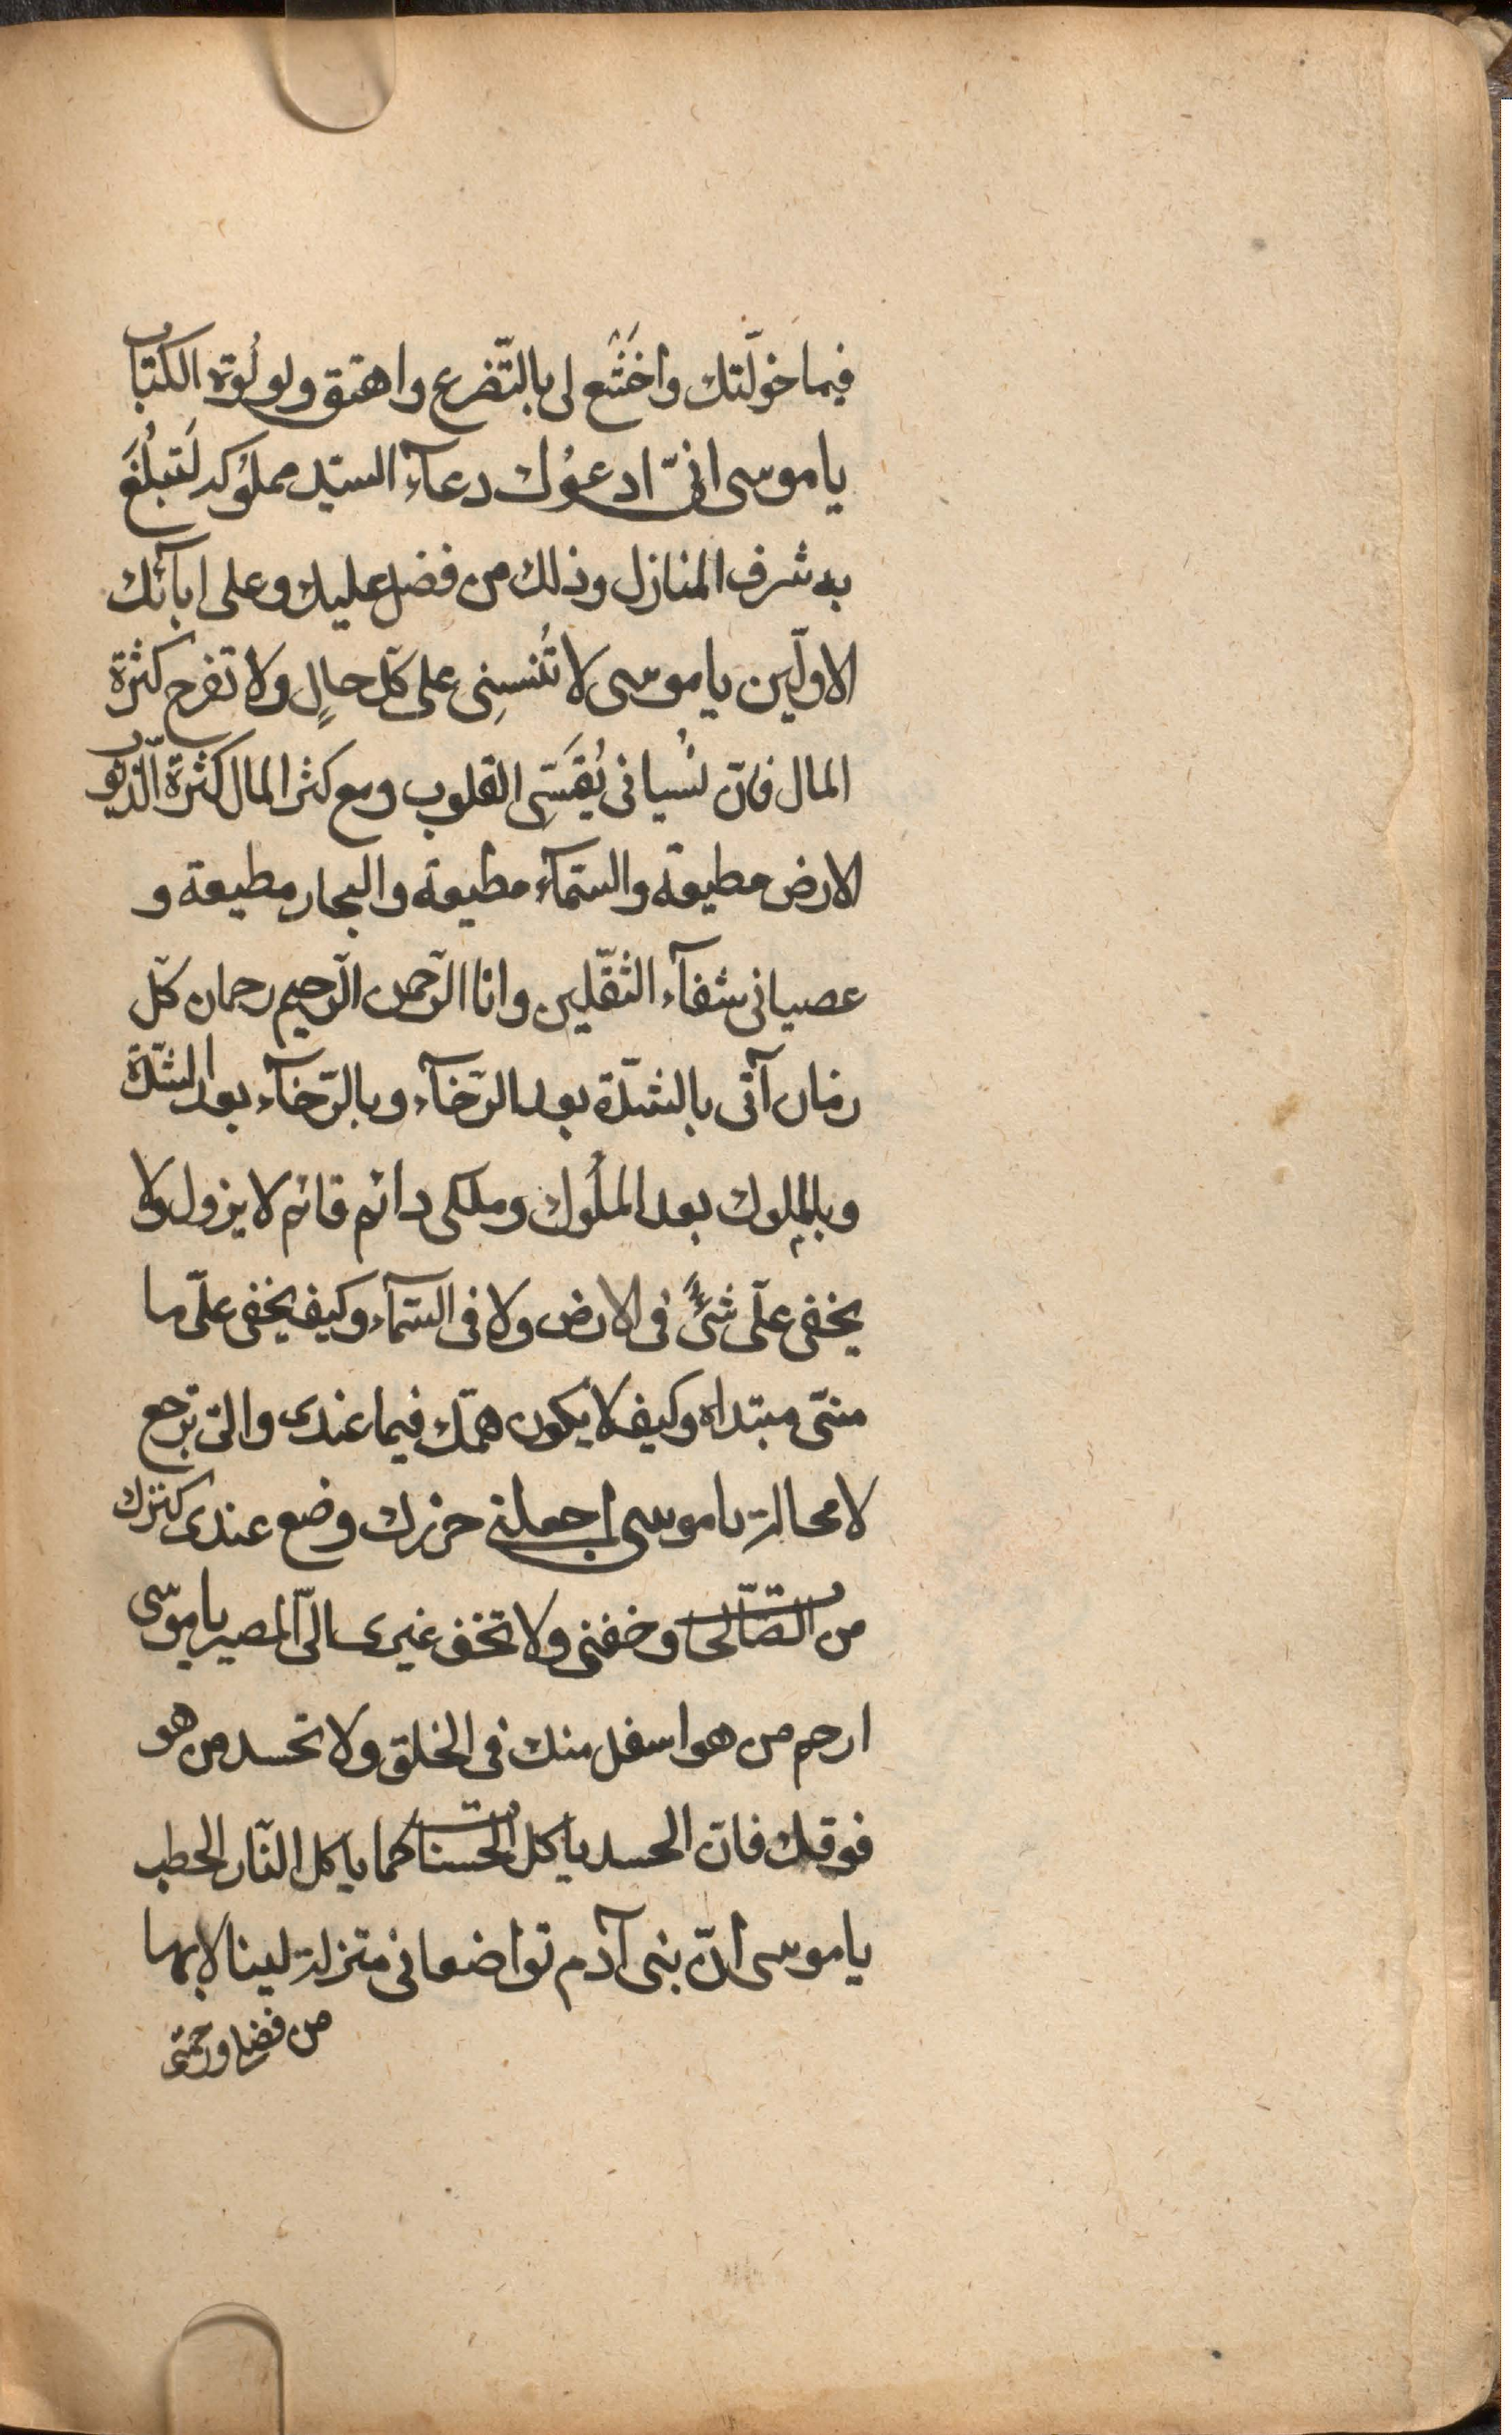 فيما خوّلتك واخشع لى بالتّضرع واهتق ولولوة الكتاب
يا موسى انّى ادعوُك دعآء السيّد مملوُكه لتَبلُغَ
به شرف المنازل وذلك من فضلى عليك وعلى ابآئك
الاوّلين يا موسى لا تُنسِنى على كلّ حالٍ ولا تفرح كثرة
المال فانّ نسْيانى يُقَسّى القلوب ومع كثر المال كثرة الذّنوب
الارض مطيعة والسّمآء مطيعة والبحار مطيعة و
عصيانى شقآء الثّقلين وانا الرّحمن الرّحيم رحمان كلّ
زمان آتى بالشّدّة بعد الرّخآء وبالرّخآء بعد الشّدّة
وبالملوك بعد الملُوك وملكى دائم قائم لا يزول ولا
يخفى علّى شىءٌ فى الارض ولا فى السّمآء وكيف يخفى علّى ما
منّى مبتداه وكيف لا يكون همّك فيما عندى والىّ ترجع
لا محالة يا موسى اجعلنى حرزك وضع عندى كنزك
من الصّالحات وخفنى ولا تخف غيرى الىّ المصير يا موسى
ارحم من هو اسفل منك فى الخلق ولا تحسد من هو
فوقك فانّ الحسد ياكل الحسنات كما ياكل النّار الحطب
يا موسى انّ بنى آدم تواضعا فى منزلة لينالا بها
من فضلى ورحمتى